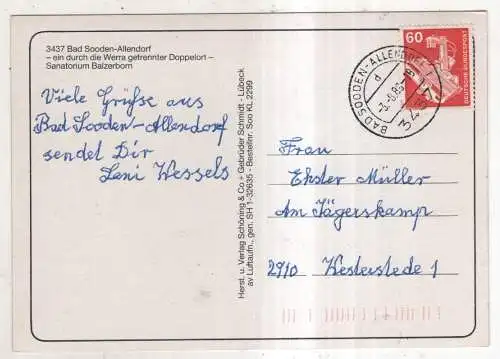 3437 Bad Sooden-Allendorf
– ein durch die Werra getrennter Doppelort –
Sanatorium Balzerborn
Viele Grüße aus
Bad Sooden-Allendorf
sendet Dir
Leni Wessels
Herst. u. Verlag Schöning & Co + Gebrüder Schmidt - Lübeck
av Luftaufn., gen. SH 1-32635 - Bestellnr. Soo KL 2299
60
DEUTSCHE BUNDESPOST
BAD SOODEN-ALLENDORF 1
d
3437
Frau
Ekster Müller
Am Jägerskamp
2910 Westerstede 1